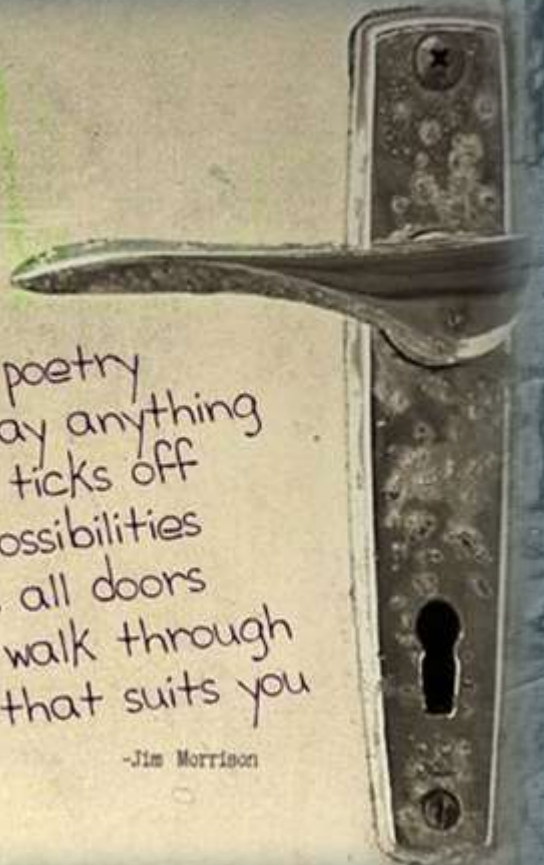 poetry
ay anything
ticks off
ossibilities
all doors
walk through
that suits you
-Jim Morrison